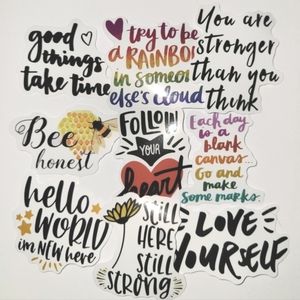 good
things
take time
try to be
a RAINBOW
in someone
else's cloud
You are
stronger
than you
think
Bee
honest
FOLLOW
YOUR
heart
Each day
is a
blank
canvas.
Go and
make
some marks.
hello
WORLD
im NEW here
STILL
HERE
STILL
STRONG
LOVE
YOURSELF